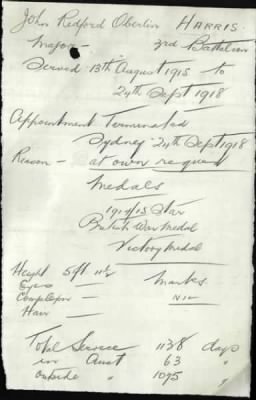 John Redford Oberlin HARRIS.
Major — 3rd Battalion
Served 13th August 1915 to
24th Sept 1918
Appointment Terminated
Sydney 24th Sept 1918
Reason — at own request
Medals
1914/15 Star
British War Medal
Victory Medal
Height 5ft 11½ Marks
Eyes — Nil
Complexion —
Hair —
Total Service 1138 days
in Aust 63 "
outside " 1075 "